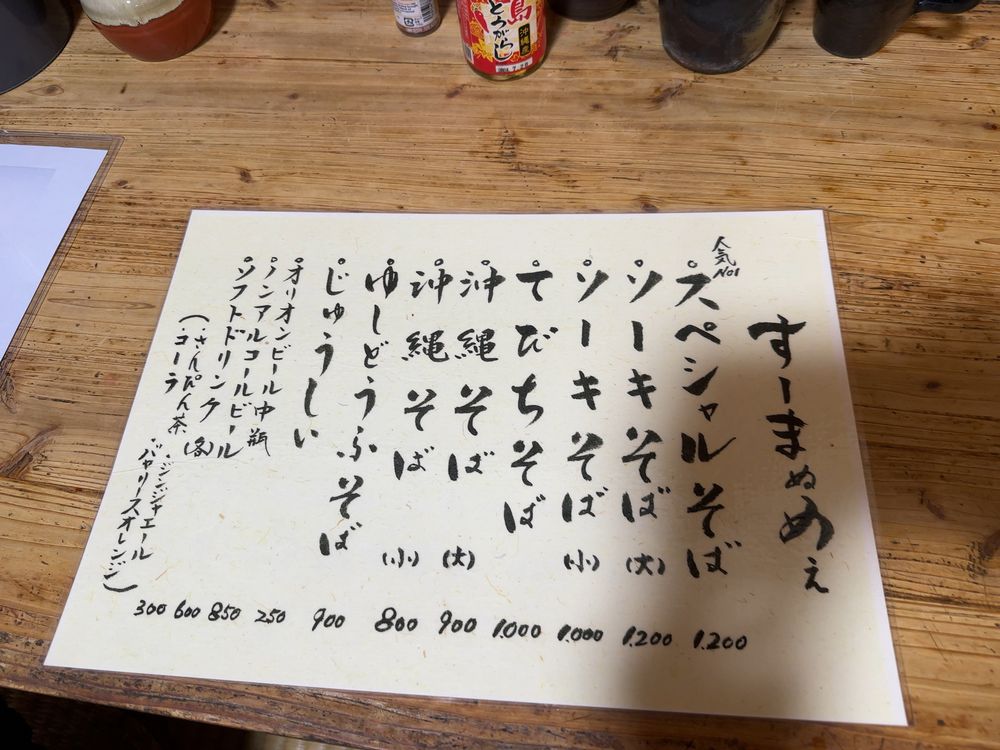 島
とうがらし
沖縄産
すーまぬめぇ
人気
No1
スペシャルそば 1.200
ソーキそば(大) 1.200
ソーキそば(小) 1.000
てびちそば 1.000
沖縄そば(大) 900
沖縄そば(小) 800
ゆしどうふそば 900
じゅうしい 250
オリオンビール中瓶 850
ノンアルコールビール 600
ソフトドリンク(各) 300
(・さんぴん茶 ・ジンジャエール
・コーラ ・バヤリースオレンジ)